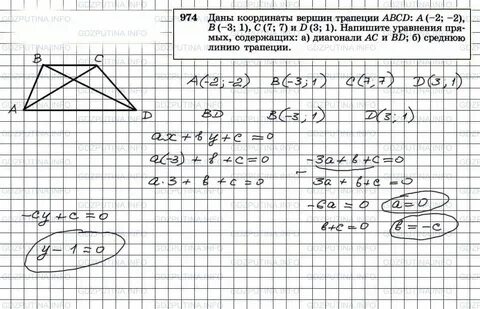 974 Даны координаты вершин трапеции ABCD: A (−2; −2),
B (−3; 1), C (7; 7) и D (3; 1). Напишите уравнения пря-
мых, содержащих: а) диагонали AC и BD; б) среднюю
линию трапеции.
B C
A D
A(-2; -2) B(-3; 1) C(7, 7) D(3, 1)
BD B(-3, 1) D(3; 1)
ax + by + c = 0
a(-3) + b + c = 0
a·3 + b + c = 0
-3a + b + c = 0
- 3a + b + c = 0
-6a = 0 a = 0
b + c = 0 b = -c
-cy + c = 0
y - 1 = 0
GDZPUTINA.INFO